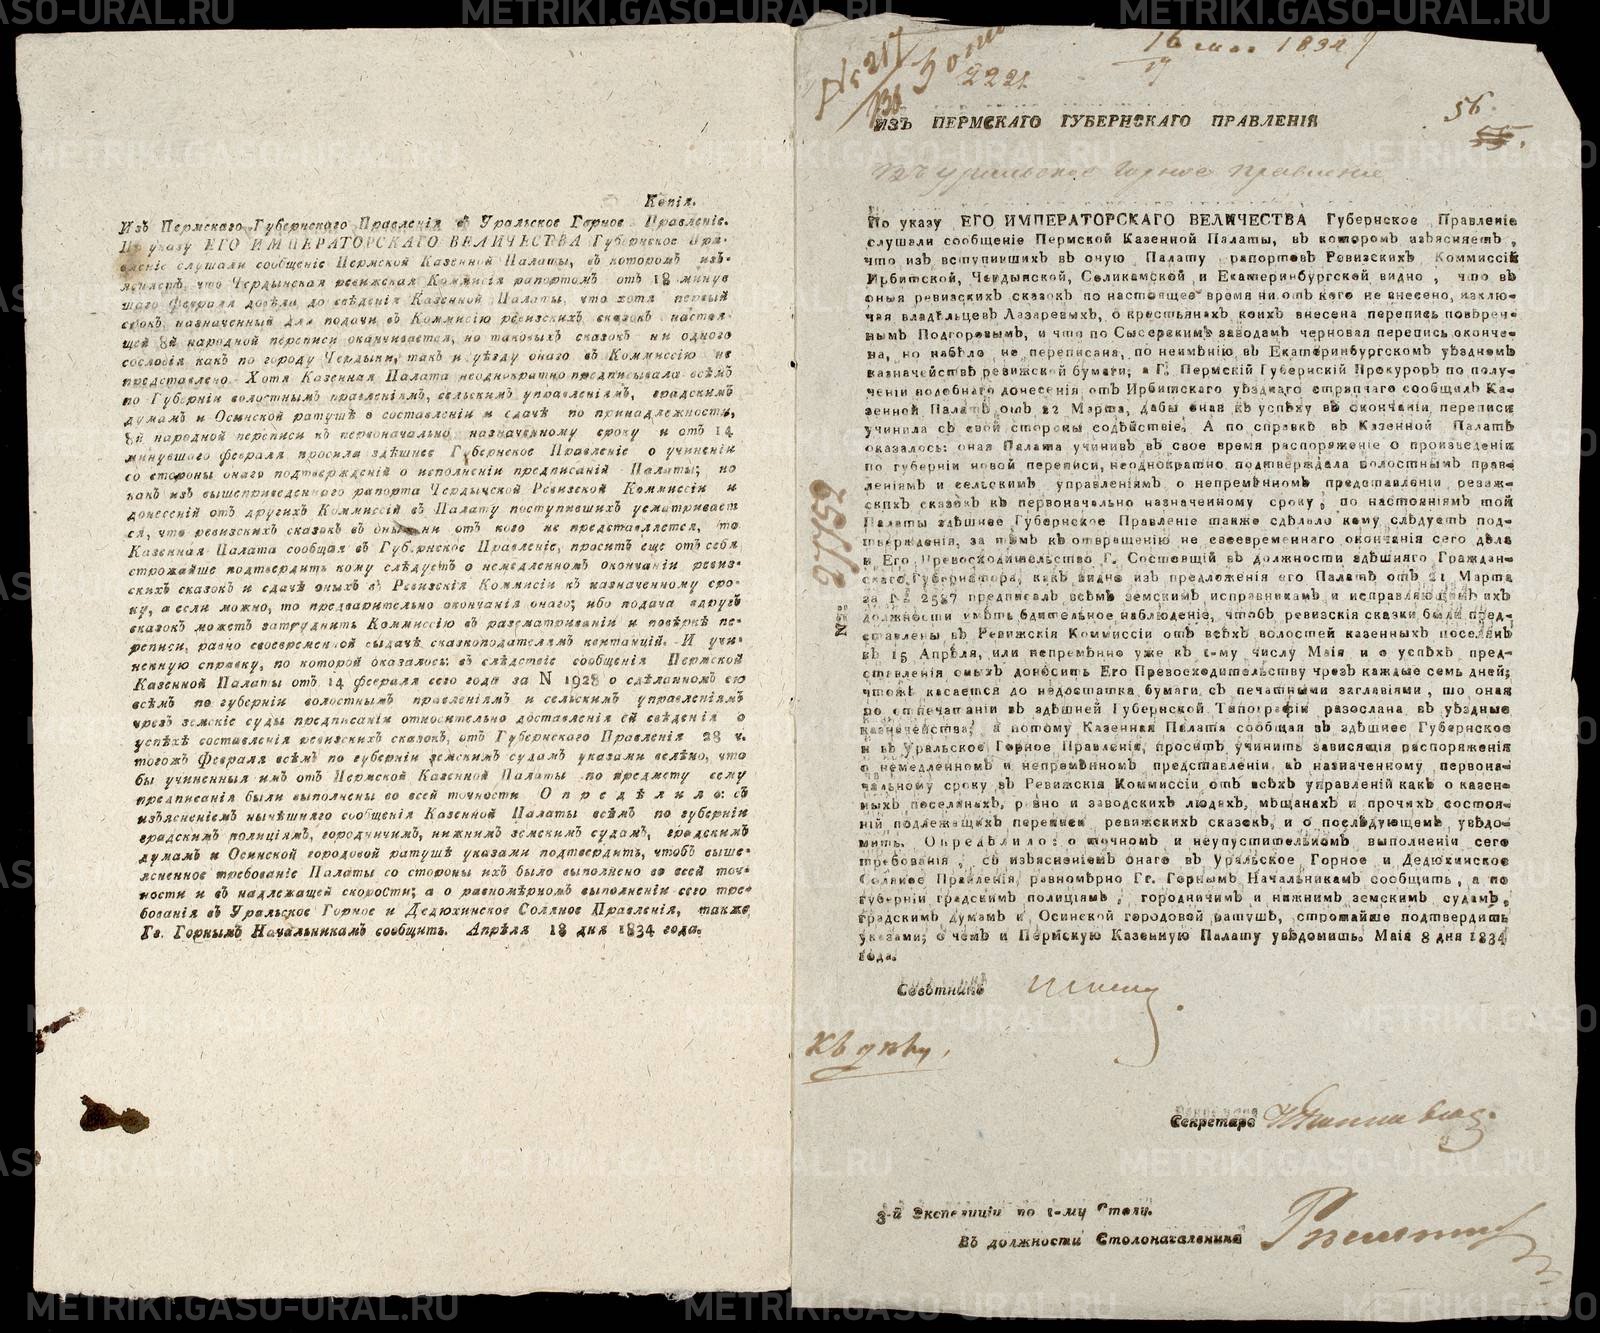 Копія.
Изъ Пермскаго Губернскаго Правленія в Уральское Горное Правленіе.
По указу ЕГО ИМПЕРАТОРСКАГО ВЕЛИЧЕСТВА Губернское Пра-
вленіе слушали сообщеніе Пермской Казенной Палаты, въ которомъ изъ-
ясняетъ, что Чердынская ревижская Коммисія рапортомъ отъ 18 минув
шаго февраля довела до свѣденія Казенной Палаты, что хотя первый
срокъ назначенный для подачи въ Коммисію ревизскихъ сказокъ настоя-
щей 8й народной переписи оканчивается, но таковыхъ сказокъ ни одного
сословія какъ по городу Чердыни, такъ и уѣзду онаго въ Коммиссію не
представлено. Хотя Казенная Палата неоднократно предписывала всѣмъ
по Губерніи волостнымъ правленіямъ, сельскимъ управленіямъ, градскимъ
думамъ и Осинской ратушѣ о составленіи и сдачѣ по принадлежности,
8й народной переписи къ первоначально назначенному сроку и отъ 14
минувшаго февраля просила здѣшнее Губернское Правленіе о учиненіи
со стороны онаго подтвержденій о исполненіи предписаній Палаты; но
какъ изъ вышеприведеннаго рапорта Чердынской Ревизской Коммиссіи и
донесеній отъ другихъ Коммиссій въ Палату поступившихъ усматривает
ся, что ревизскихъ сказокъ въ оныя ни отъ кого не представляется, то
Казенная Палата сообщая въ Губернское Правленіе, проситъ еще отъ себя
строжайше подтвердить кому слѣдуетъ о немедленномъ окончаніи ревиз-
скихъ сказокъ и сдачѣ оныхъ въ Ревизскія Коммисіи къ назначенному сро-
ку, а если можно, то предварительно окончанія онаго; ибо подача вдругъ
сказокъ можетъ затруднить Коммиссію въ разсматриваніи и повѣркѣ пе-
реписи, равно своевременной выдачѣ сказкоподателямъ квитанцій. И учи-
ненную справку, по которой оказалось: въ слѣдствіе сообщенія Пермской
Казенной Палаты отъ 14 февраля сего года за N 1928 о сдѣланномъ ею
всѣмъ по губерніи волостнымъ правленіямъ и сельскимъ управленіямъ
чрезъ земскіе суды предписаніи относительно доставленія ей свѣденія о
успѣхѣ составленія ревизскихъ сказокъ, отъ Губернскаго Правленія 28 ч.
тогожъ Февраля всѣмъ по губерніи земскимъ судамъ указами велѣно, что
бы учиненныя имъ отъ Пермской Казенной Палаты по предмету сему
предписанія были выполнены во всей точности. Опредѣлило: съ
изъясненіемъ нынѣшняго сообщенія Казенной Палаты всѣмъ по губерніи
градскимъ полиціямъ, городничимъ, нижнимъ земскимъ судамъ, градскимъ
думамъ и Осинской городовой ратушѣ указами подтвердить, чтобъ выше-
ясненное требованіе Палаты со стороны ихъ было выполнено во всей точ-
ности и въ надлежащей скорости; а о равномѣрномъ выполненіи сего тре-
бованія въ Уральское Горное и Дедюхинское Соляное Правленія, также
Гг. Горнымъ Начальникамъ сообщить. Апрѣля 18 дня 1834 года.
2221
56
55.
ИЗЪ ПЕРМСКАГО ГУБЕРНСКАГО ПРАВЛЕНІЯ
Въ уральское горное правленіе
По указу ЕГО ИМПЕРАТОРСКАГО ВЕЛИЧЕСТВА Губернское Правленіе
слушали сообщеніе Пермской Казенной Палаты, въ которомъ изъясняетъ,
что изъ вступившихъ въ оную Палату рапортовъ Ревизскихъ Коммиссій
Ирбитской, Чердынской, Соликамской и Екатеринбургской видно, что въ
оныя ревизскихъ сказокъ по настоящее время ни отъ кого не внесено, исклю-
чая владѣльцевъ Лазаревыхъ, о крестьянахъ коихъ внесена перепись повѣрен-
нымъ Подгоровымъ, и что по Сысерскимъ заводамъ черновая перепись оконче-
на, но набѣло не переписана, по неимѣнію въ Екатеринбургскомъ уѣздномъ
казначействѣ ревижской бумаги; а Г. Пермскій Губернскій Прокуроръ по полу-
ченіи подобнаго донесенія отъ Ирбитскаго уѣзднаго стряпчаго сообщилъ Ка-
зенной Палатѣ отъ 22 Марта, дабы оная къ успѣху въ окончаніи переписи
учинила съ своей стороны содѣйствіе. А по справкѣ въ Казенной Палатѣ
оказалось: оная Палата учинивъ въ свое время распоряженіе о произведеніи
по губерніи новой переписи, неоднократно подтверждала волостнымъ прав-
леніямъ и сельскимъ управленіямъ о непремѣнномъ представленіи ревиж-
скихъ сказокъ къ первоначально назначенному сроку; по настояніямъ той
Палаты здѣшнее Губернское Правленіе также сдѣлало кому слѣдуетъ под-
твержденія, за тѣмъ къ отвращенію не своевременнаго окончанія сего дѣла
и Его Превосходительство Г. Состоящій въ должности здѣшняго Граждан-
скаго Губернатора, какъ видно изъ предложенія его Палатѣ отъ 21 Марта
за № 2587 предписалъ всѣмъ земскимъ исправникамъ и исправляющимъ ихъ
должности имѣть бдительное наблюденіе, чтобъ ревизскія сказки были пред-
ставлены въ Ревижскія Коммиссіи отъ всѣхъ волостей казенныхъ поселянъ
къ 15 Апрѣля, или непремѣнно уже къ 1-му числу Маія и о успѣхѣ пред-
ставленія оныхъ доносить Его Превосходительству чрезъ каждые семь дней;
чтожъ касается до недостатка бумаги съ печатными заглавіями, то оная
по отпечатаніи въ здѣшней Губернской Типографіи разослана въ уѣздные
казначейства; а потому Казенная Палата сообщая въ здѣшнее Губернское
и въ Уральское Горное Правленія, проситъ учинить зависящія распоряженія
о немедленномъ и непремѣнномъ представленіи къ назначенному первона-
чальному сроку въ Ревижскія Коммиссіи отъ всѣхъ управленій какъ о казен-
ныхъ поселянахъ, равно и заводскихъ людяхъ, мѣщанахъ и прочихъ состоя-
ній подлежащихъ переписи ревижскихъ сказокъ, и о послѣдующемъ увѣдо-
мить. Опредѣлило: о точномъ и неупустительномъ выполненіи сего
требованія, съ изъясненіемъ онаго въ Уральское Горное и Дедюхинское
Соляное Правленія, равномѣрно Гг. Горнымъ Начальникамъ сообщить, а по
губерніи градскимъ полиціямъ, городничимъ и нижнимъ земскимъ судамъ,
градскимъ Думамъ и Осинской городовой ратушѣ, строжайше подтвердить
указами; о чемъ и Пермскую Казенную Палату увѣдомить. Маія 8 дня 1834
года.
Совѣтникъ
Къ дѣлу.
Секретарь
3-й Экспедиціи по 1-му Столу.
Въ должности Столоначальника